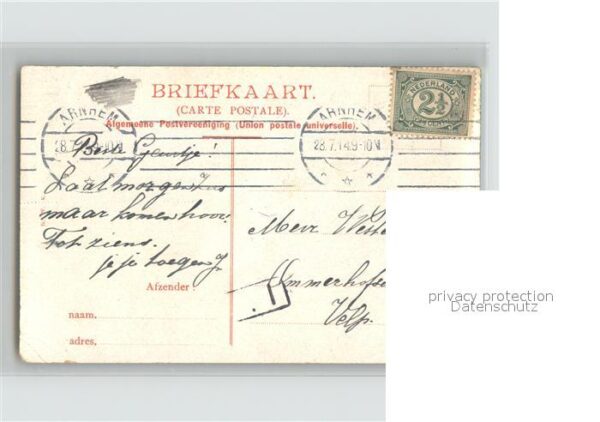 BRIEFKAART.
(CARTE POSTALE).
Algemeene Postvereeniging (Union postale universelle).
ARNHEM
28.7
ARNHEM
28.7.14.9-10V
NEDERLAND
2½
Beste
Laat morgen
maar komen hoor.
Tot ziens.
Mevr
Velp.
Afzender:
naam.
adres.
privacy protection
Datenschutz